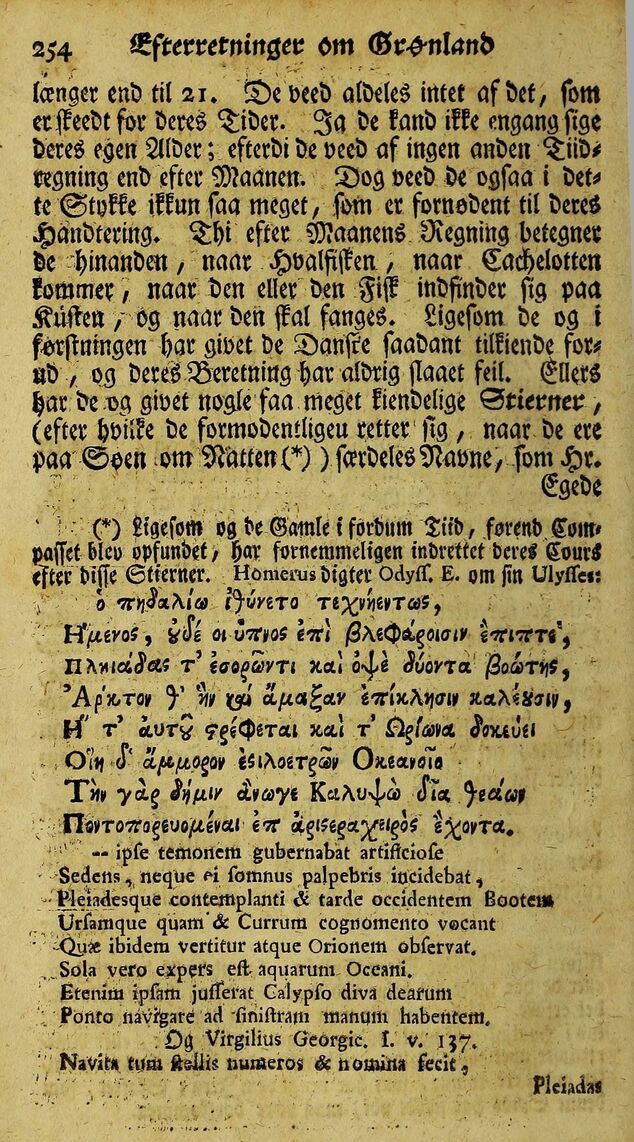 254 Efterretninger om Grønland
længer end til 21. De veed aldeles intet af det, som
er skeedt for deres Tider. Ja de kand ikke engang sige
deres egen Alder; efterdi de veed af ingen anden Tiid-
regning end efter Maanen. Dog veed de ogsaa i det-
te Stykke ikkun saa meget, som er fornødent til deres
Handtering. Thi efter Maanens Regning betegner
de hinanden, naar Hvalfisken, naar Cachelotten
kommer, naar den eller den Fisk indfinder sig paa
Kysten, og naar den skal fanges. Ligesom de og i
førstningen har givet de Danske saadant tilkiende for-
ud, og deres Beretning har aldrig slaaet feil. Ellers
har de og givet nogle faa meget kiendelige Stierner,
(efter hvilke de formodentligen retter sig, naar de ere
paa Søen om Natten(*)) særdeles Navne, som Hr.
Egede
(*) Ligesom og de Gamle i fordum Tiid, førend Com-
passet blev opfundet, har fornemmeligen indrettet deres Cours
efter disse Stierner. Homerus digter Odyss. E. om sin Ulysses:
ὁ πηδαλίω ἰθύνετο τεχνηέντως,
Ημενος, ȣδέ οι ὑπνος ἐπὶ βλεφάροισιν ἐπιπτε,
Πληιάδας τ' ἐσορῶντι καὶ ὀψὲ δύοντα βοώτης,
Ἄρκτον θ' ἣν καὶ ἅμαξαν ἐπίκλησιν καλέȣσιν,
Η τ' ἀυτȣ ϛρέφεται καὶ τ' Ωρίωνα δοκεύει
Οἴη δ' ἄμμορον ἐϛιλοετρῶν Οκεανοῖο
Τὴν γὰρ δήμιν ἀνωγε Καλυψὼ δῖα θεάων
Ποντοπορευομέναι ἐπ ἀριϛεραχειρὸς ἐχοντα.
-- ipse temonem gubernabat artificiose
Sedens, neque ei somnus palpebris incidebat,
Pleiadesque contemplanti & tarde occidentem Bootem
Ursamque quam & Currum cognomento vocant
Quæ ibidem vertitur atque Orionem observat.
Sola vero expers est aquarum Oceani.
Etenim ipsam jusserat Calypso diva dearum
Ponto navigare ad sinistram manum habentem.
Og Virgilius Georgic. I. v. 137.
Navita tum stellis numeros & nomina fecit,
Pleiadas